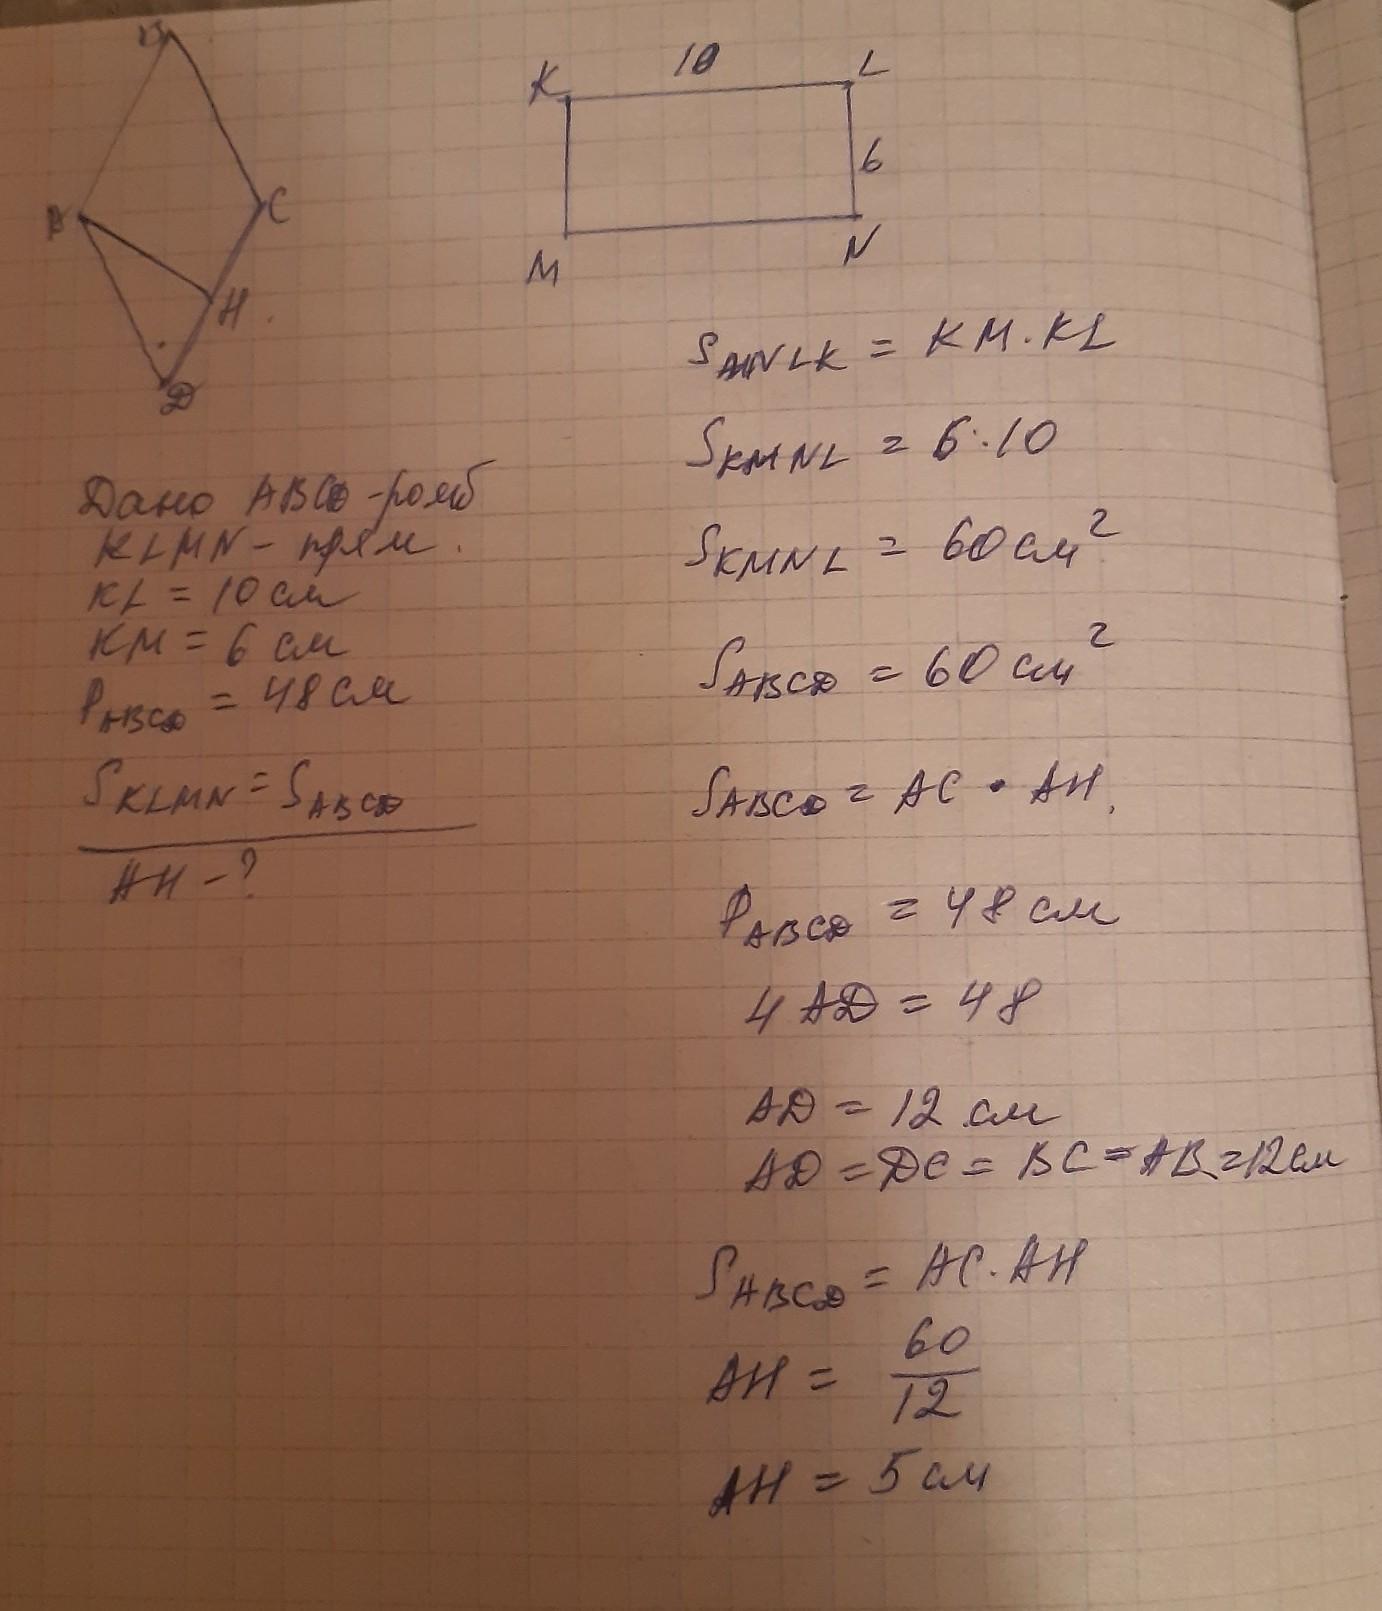 B
A
C
H
D
K
10
L
6
M
N
Дано ABCD - ромб
KLMN - прям.
KL = 10 см
KM = 6 см
P ABCD = 48 см
S KLMN = S ABCD
AH - ?
S MNLK = KM · KL
S KMNL = 6 · 10
S KMNL = 60 см²
S ABCD = 60 см²
S ABCD = AC · AH,
P ABCD = 48 см
4 AD = 48
AD = 12 см
AD = DC = BC = AB = 12 см
S ABCD = AC · AH
AH = 60/12
AH = 5 см